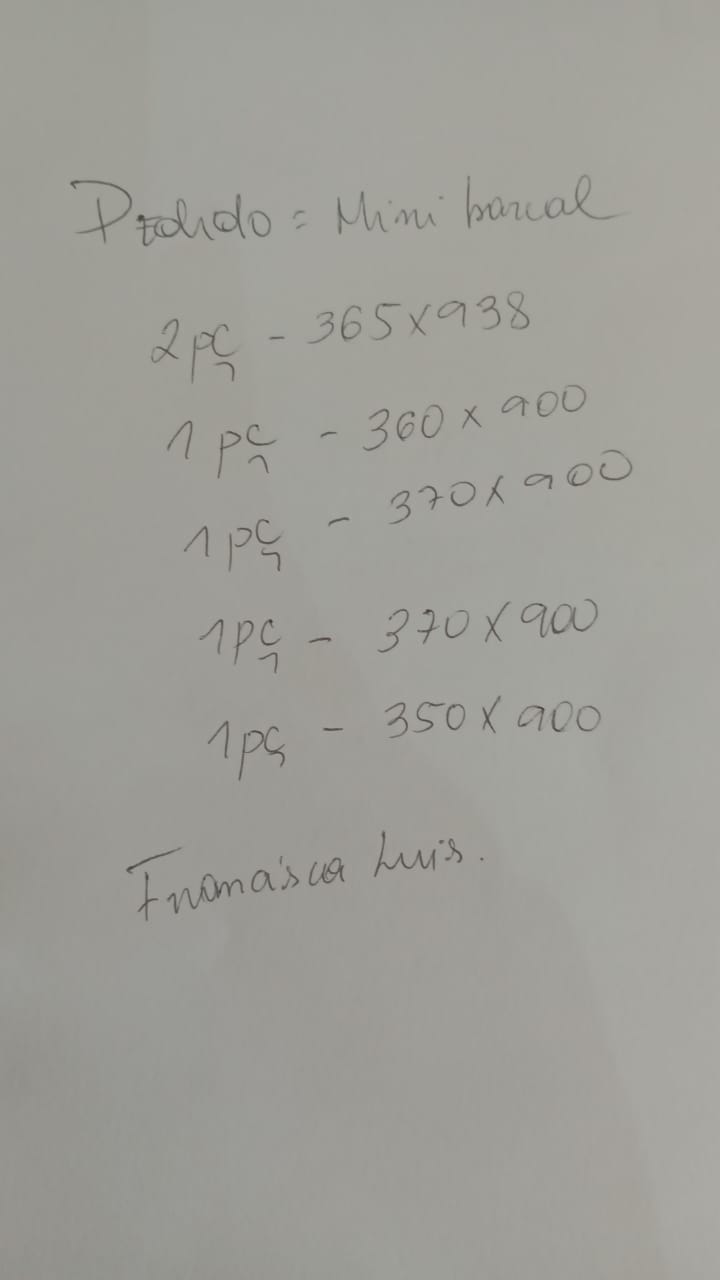 Pedido = Mini boreal
2 pç - 365 x 938
1 pç - 360 x 900
1 pç - 370 x 900
1 pç - 370 x 900
1 pç - 350 x 900
Francisca Luis.